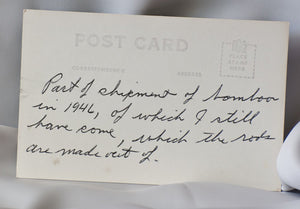 POST CARD
PLACE
STAMP
HERE
CORRESPONDENCE
ADDRESS
Part of shipment of bamboo
in 1946, of which I still
have some, which the rods
are made out of.